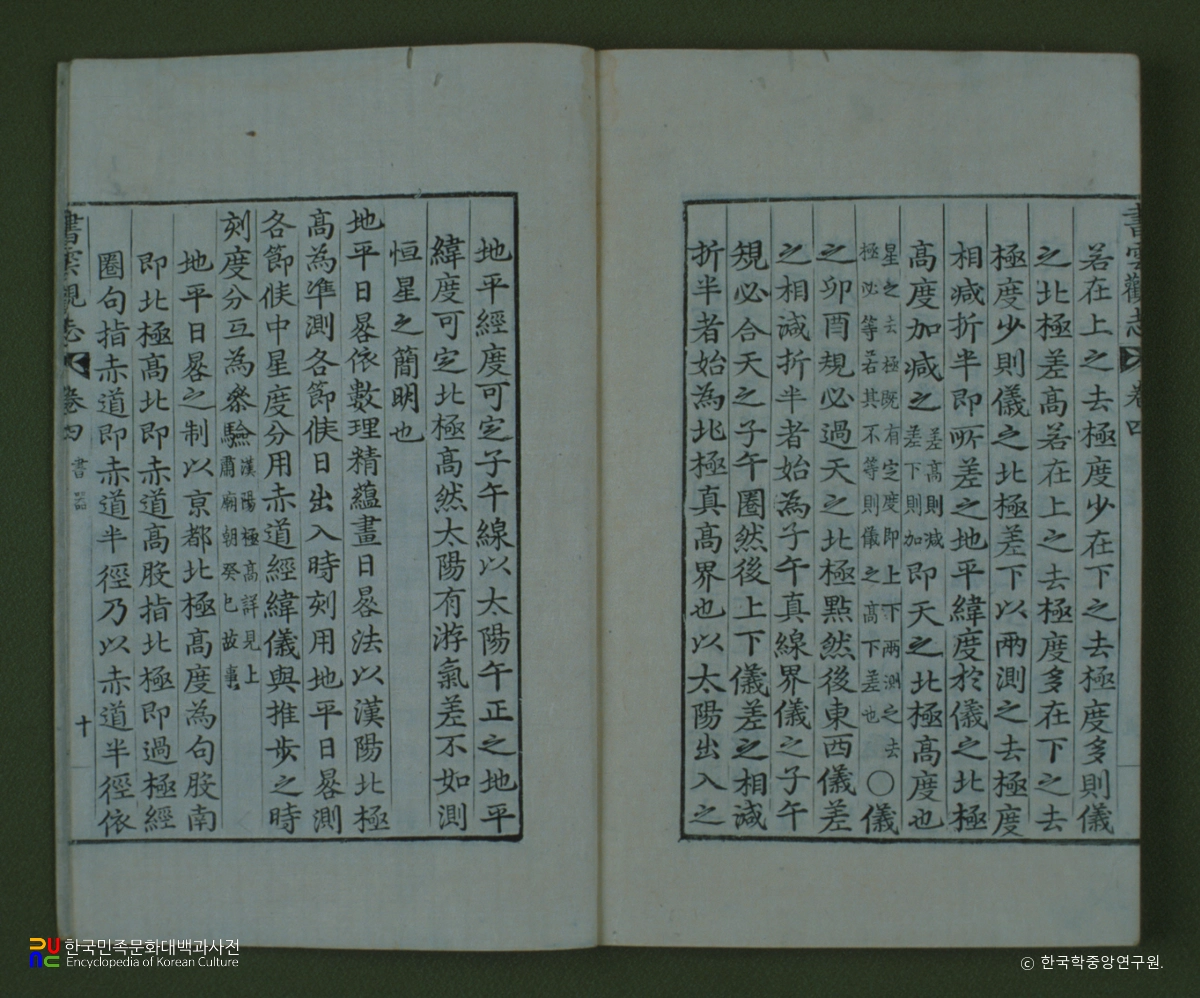 書雲觀志 卷四
若在上之去極度少在下之去極度多則儀
之北極差高若在上之去極度多在下之去
極度少則儀之北極差下以兩測之去極度
相减折半即所差之地平緯度於儀之北極
高度加减之差高則减差下則加即天之北極高度也
星之去極既有定度即上下兩測之去
極必等若其不等則儀之高下差也〇儀
之卯酉規必過天之北極點然後東西儀差
之相減折半者始為子午真線界儀之子午
規必合天之子午圈然後上下儀差之相減
折半者始為北極真高界也以太陽出入之
地平經度可定子午線以太陽午正之地平
緯度可定北極高然太陽有游氣差不如測
恒星之簡明也
地平日晷依數理精蘊畫日晷法以漢陽北極
高為準測各節候日出入時刻用地平日晷測
各節候中星度分用赤道經緯儀與推步之時
刻度分互為叅驗漢陽極高詳見上
肅廟朝癸巳故事
地平日晷之制以京都北極高度為句股南
即北極高北即赤道高股指北極即過極經
圈句指赤道即赤道半徑乃以赤道半徑依
書雲觀志 卷四 書器 十
한국민족문화대백과사전
Encyclopedia of Korean Culture
ⓒ 한국학중앙연구원.